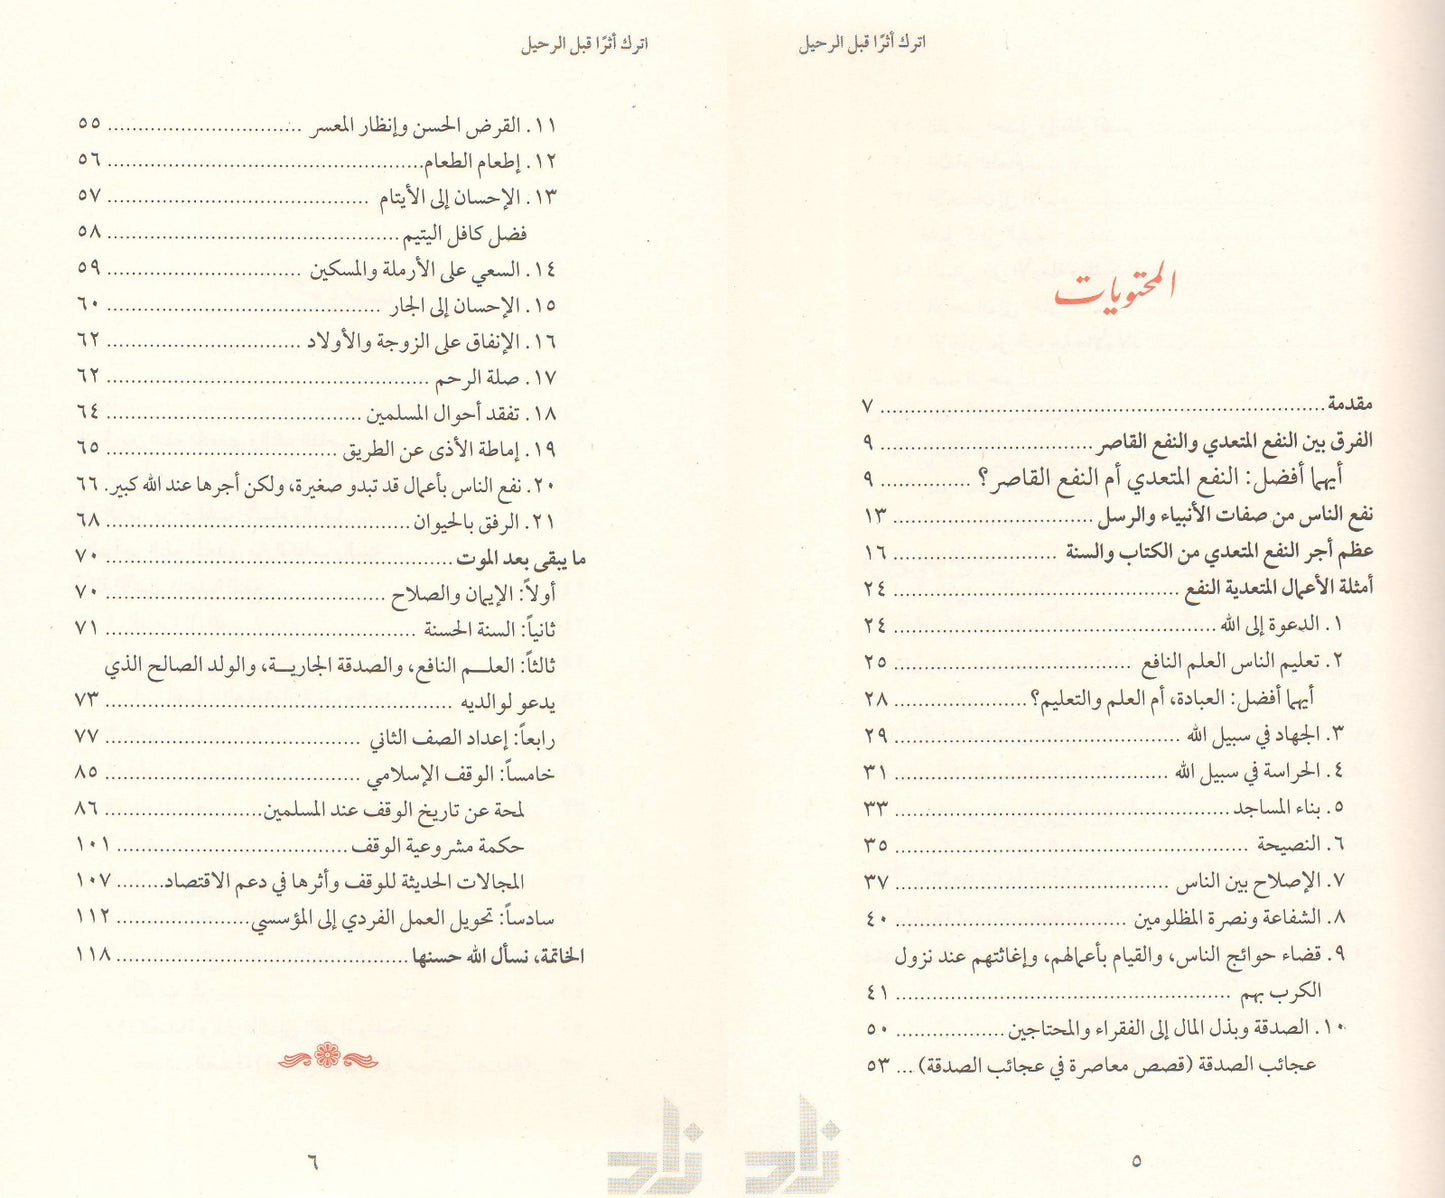 اترك أثرًا قبل الرحيل
المحتويات
مقدمة ........ ٧
الفرق بين النفع المتعدي والنفع القاصر ........ ٩
أيهما أفضل: النفع المتعدي أم النفع القاصر؟ ........ ٩
نفع الناس من صفات الأنبياء والرسل ........ ١٣
عظم أجر النفع المتعدي من الكتاب والسنة ........ ١٦
أمثلة الأعمال المتعدية النفع ........ ٢٤
١. الدعوة إلى الله ........ ٢٤
٢. تعليم الناس العلم النافع ........ ٢٥
أيهما أفضل: العبادة، أم العلم والتعليم؟ ........ ٢٨
٣. الجهاد في سبيل الله ........ ٢٩
٤. الحراسة في سبيل الله ........ ٣١
٥. بناء المساجد ........ ٣٣
٦. النصيحة ........ ٣٥
٧. الإصلاح بين الناس ........ ٣٧
٨. الشفاعة ونصرة المظلومين ........ ٤٠
٩. قضاء حوائج الناس، والقيام بأعمالهم، وإغاثتهم عند نزول
الكرب بهم ........ ٤١
١٠. الصدقة وبذل المال إلى الفقراء والمحتاجين ........ ٥٠
عجائب الصدقة (قصص معاصرة في عجائب الصدقة) ... ٥٣
٥
زاد
اترك أثرًا قبل الرحيل
١١. القرض الحسن وإنظار المعسر ........ ٥٥
١٢. إطعام الطعام ........ ٥٦
١٣. الإحسان إلى الأيتام ........ ٥٧
فضل كافل اليتيم ........ ٥٨
١٤. السعي على الأرملة والمسكين ........ ٥٩
١٥. الإحسان إلى الجار ........ ٦٠
١٦. الإنفاق على الزوجة والأولاد ........ ٦٢
١٧. صلة الرحم ........ ٦٢
١٨. تفقد أحوال المسلمين ........ ٦٤
١٩. إماطة الأذى عن الطريق ........ ٦٥
٢٠. نفع الناس بأعمال قد تبدو صغيرة، ولكن أجرها عند الله كبير. ٦٦
٢١. الرفق بالحيوان ........ ٦٨
ما يبقى بعد الموت ........ ٧٠
أولاً: الإيمان والصلاح ........ ٧٠
ثانياً: السنة الحسنة ........ ٧١
ثالثاً: العلم النافع، والصدقة الجارية، والولد الصالح الذي
يدعو لوالديه ........ ٧٣
رابعاً: إعداد الصف الثاني ........ ٧٧
خامساً: الوقف الإسلامي ........ ٨٥
لمحة عن تاريخ الوقف عند المسلمين ........ ٨٦
حكمة مشروعية الوقف ........ ١٠١
المجالات الحديثة للوقف وأثرها في دعم الاقتصاد ........ ١٠٧
سادساً: تحويل العمل الفردي إلى المؤسسي ........ ١١٢
الخاتمة، نسأل الله حسنها ........ ١١٨
٦
زاد